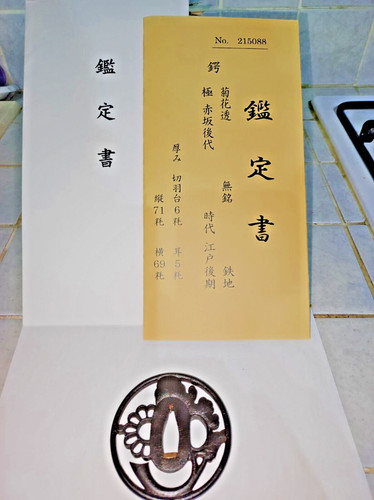 鑑定書
No. 215088
鑑定書
鍔
菊花透 無銘 鉄地
極 赤坂後代 時代 江戸後期
厚み 切羽台6粍 耳5粍
縦71粍 横69粍